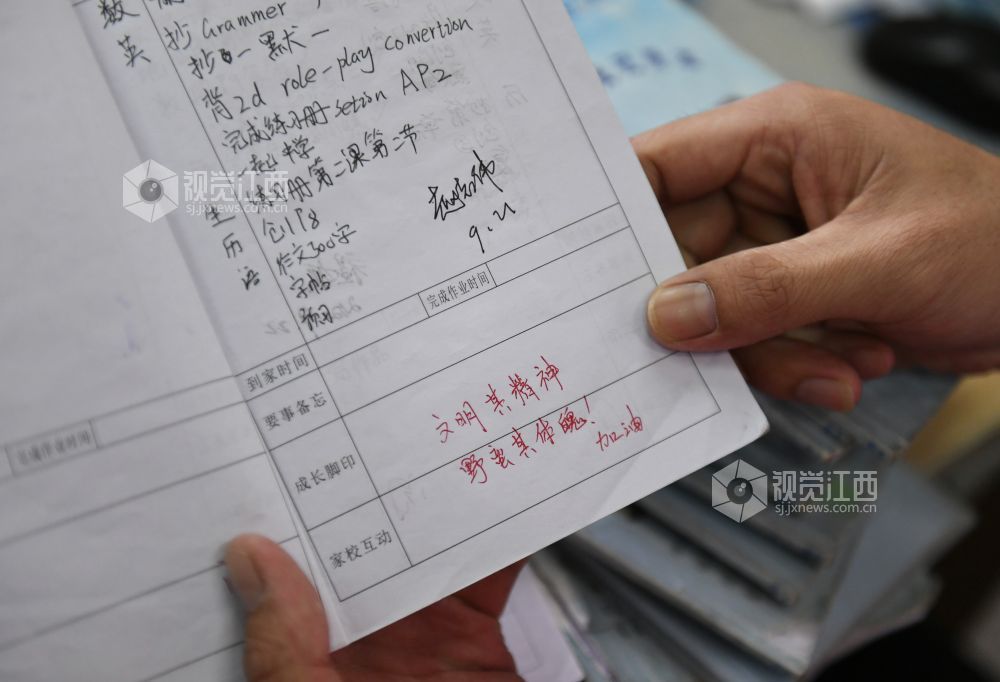 数
英
抄Grammer
抄一默一
背2d role-play convertion
完成练习册 setion AP2
一起中学
生 练习册第二课第二节
历 创118
语 作文300字
字帖
9.21
完成作业时间
到家时间
要事备忘
成长脚印
文明其精神
野蛮其体魄! 加油
家校互动
完成作业时间
视觉江西
sj.jxnews.com.cn
视觉江西
sj.jxnews.com.cn